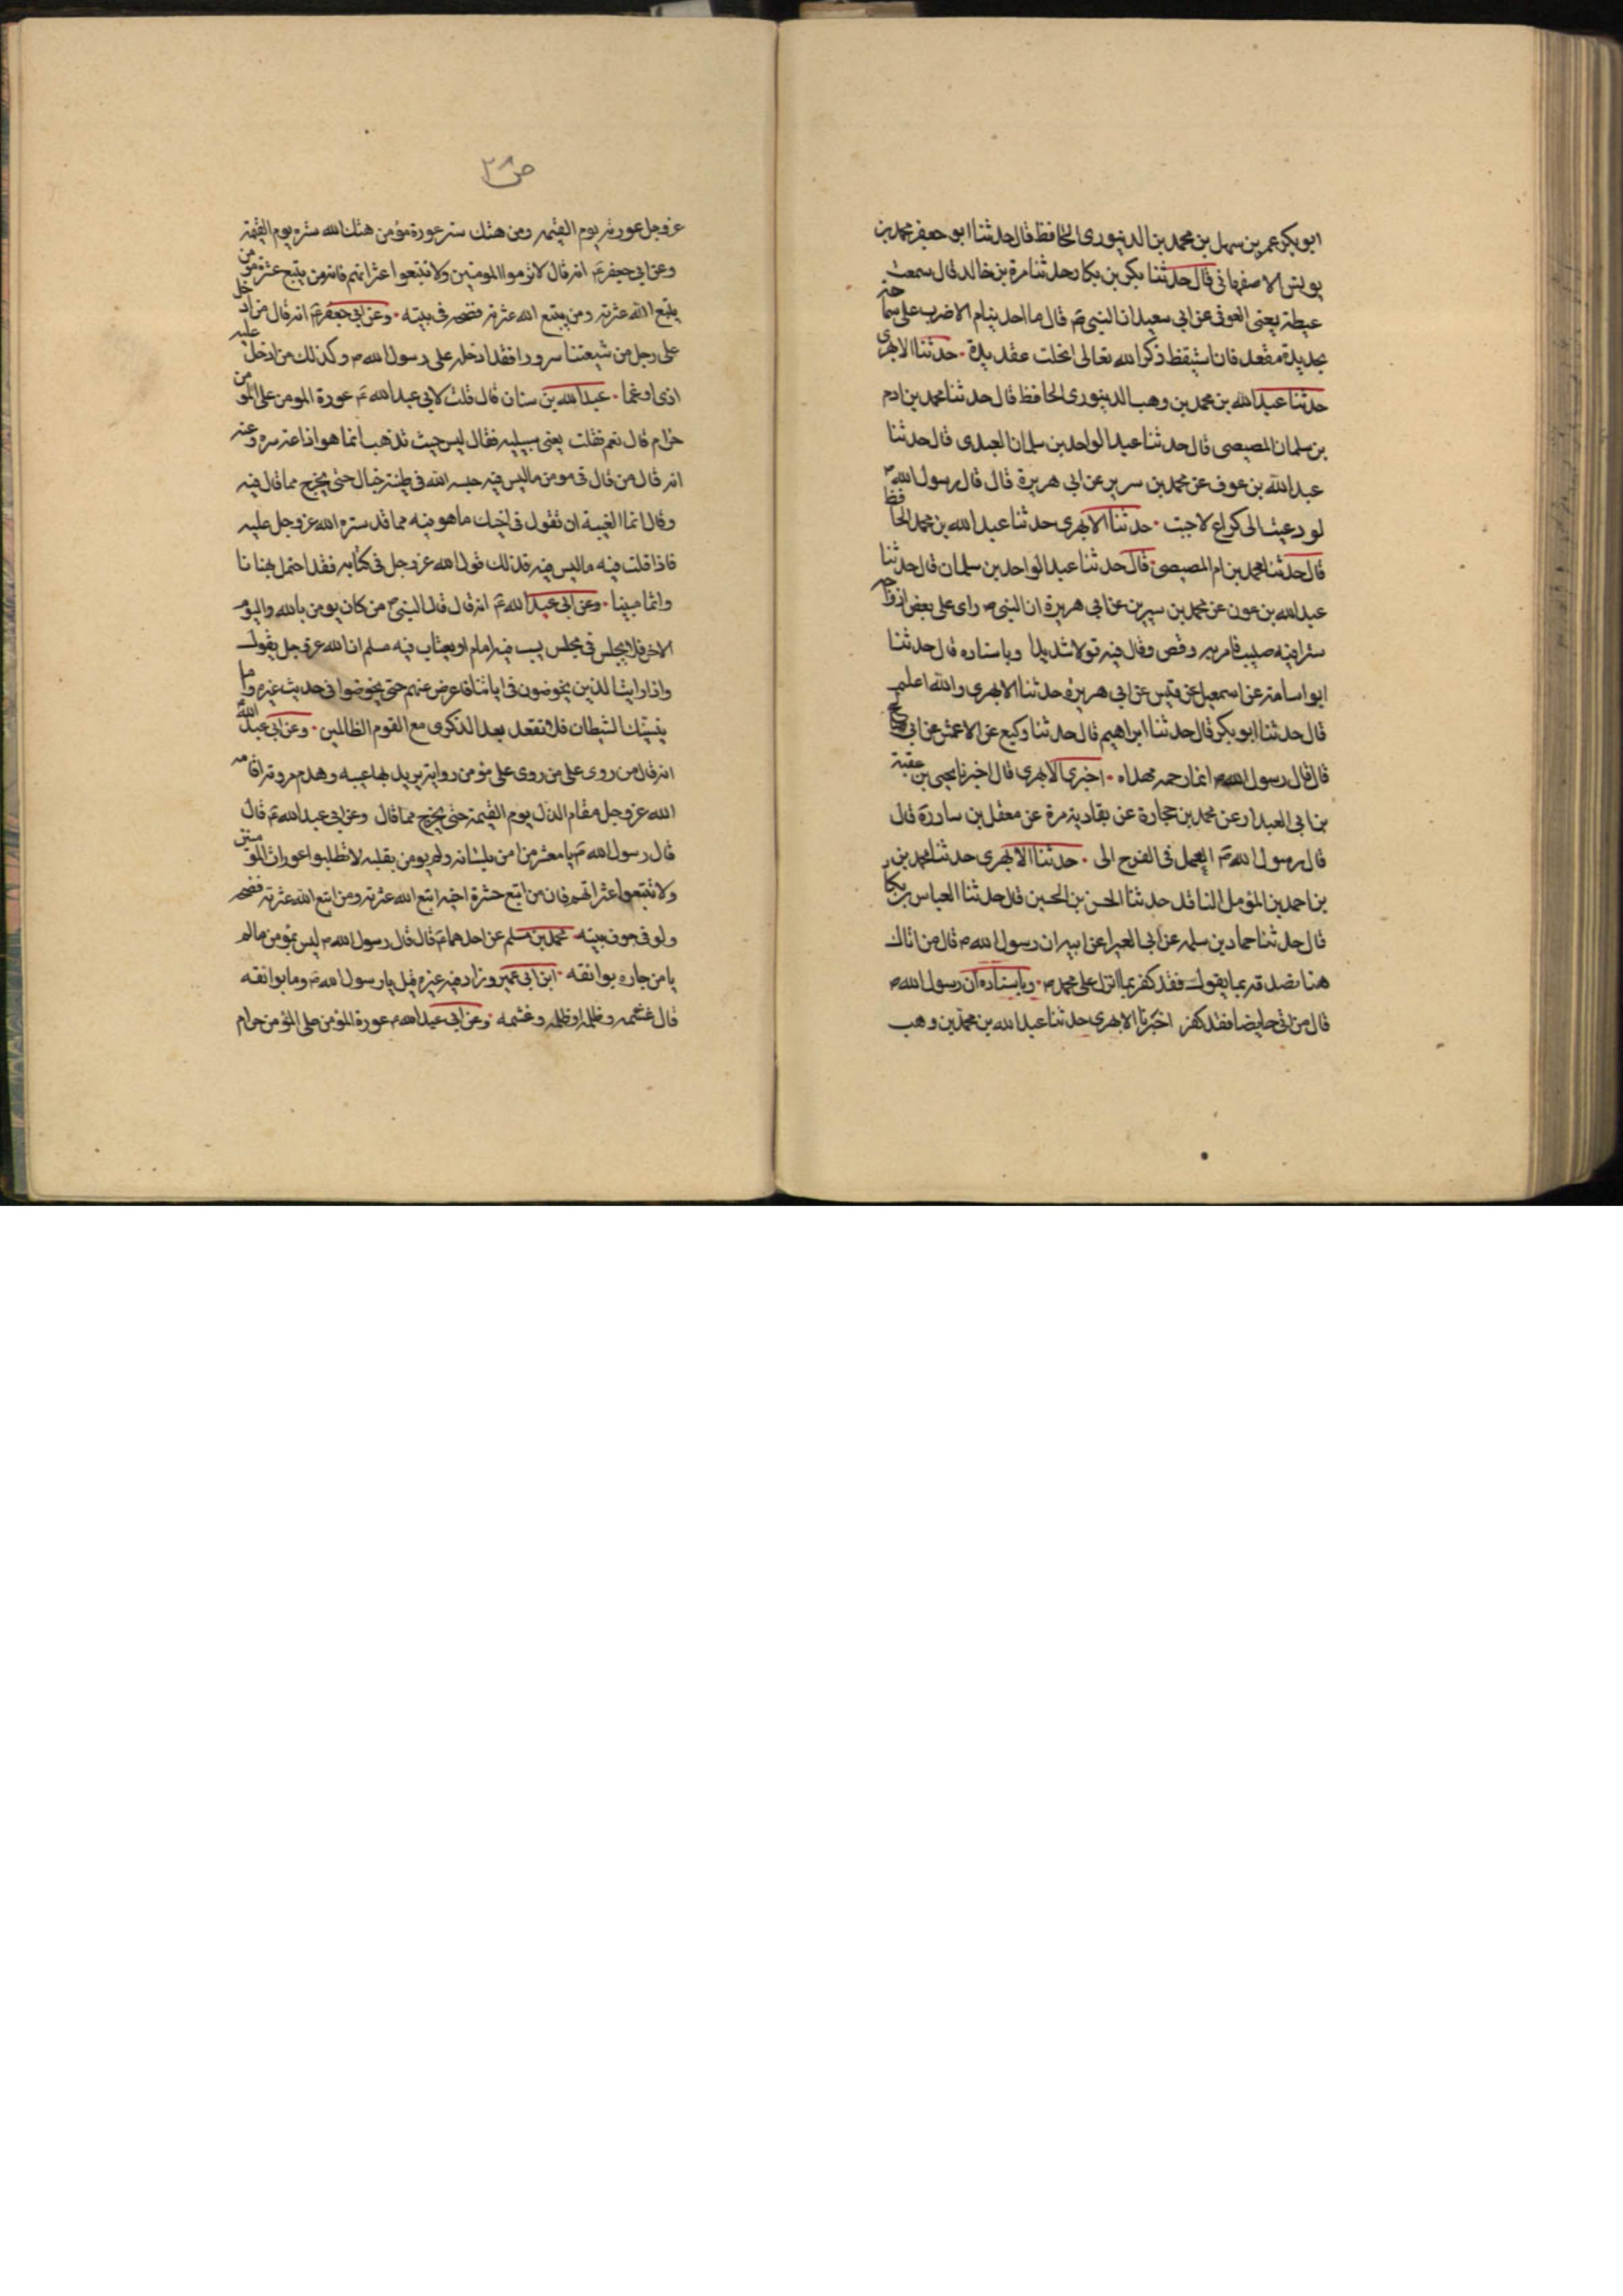 ابو بكر عمر بن سهل بن محمد بن الدينورى الحافظ قال حدثنا ابو جعفر محمد بن
يونس الاصفهانى قال حدثنا بكر بن بكار حدثنا مرة بن خالد قال سمعت
عيطة يعنى العوفى عن ابى سعيد ان النبى ص قال ما احد ينام الا ضرب على سما
بجديدة معقد فان استيقظ ذكر الله تعالى انحلت عقديدة حدثنا الابهرى
حدثنا عبد الله بن محمد بن وهب الدينورى الحافظ قال حدثنا محمد بن ادم
بن سلمان المصيصى قال حدثنا عبد الواحد بن سلمان العبدى قال حدثنا
عبد الله بن عوف عن محمد بن سرير عن ابى هريرة قال قال رسول الله ص
لو دعيت الى كراع لاجبت حدثنا الابهرى حدثنا عبد الله بن محمد الحافظ
قال حدثنا محمد بن ام المصيصى قال حدثنا عبد الواحد بن سلمان قال حدثنا
عبد الله بن عون عن محمد بن سيرين عن ابى هريرة ان النبى ص راى على بعض ازواجه
سترا فيه صليب فامر به وقص وقال فيه قولا شديدا وباسناده قال حدثنا
ابو اسامة عن اسمعيل عن قيس عن ابى هريرة حدثنا الابهرى والله اعلم
قال حدثنا ابو بكر قال حدثنا ابراهيم قال حدثنا وكيع عن الاعمش عن ابى
قال قال رسول الله ص انما رحمة مهداه اخبرنى الابهرى قال اخبرنا يحيى بن عقبة
بن ابى العيدار عن محمد بن حجارة عن بقادينه مرة عن معقل بن ساررة قال
قال رسول الله ص العمل فى الفرح الى حدثنا الابهرى حدثنا محمد بن
بن احمد بن المؤمل الناقد حدثنا الحسن بن الحسين قال حدثنا العباس بن بكار
قال حدثنا حماد بن سلمه عن ابى العيرا عن ابيه ان رسول الله ص قال من اتاك
هنا نصدقه بما يقول فقد كفر بما انزل على محمد ص وباسناده ان رسول الله ص
قال من اتى حايضا فقد كفر اخبرنا الابهرى حدثنا عبد الله بن محمد بن وهب
ص ٣٨
عز وجل عورته يوم القيمه ومن هتك ستر عورة مؤمن هتك الله ستره يوم القيمة
وعن ابى جعفر ع انه قال لا ترموا المومنين ولا تتبعوا عثراتهم فانه من يتبع عثرة مؤمن
يتبع الله عثرته ومن يتبع الله عثرته فضحه فى بيته وعن ابى جعفر ع انه قال من ادخل
على رجل من شيعتنا سرورا فقد ادخله على رسول الله ص وكذلك من ادخل عليه
اذى او غما عبد الله بن سنان قال قلت لابى عبد الله ع عورة المومن على المومن
حرام قال نعم فقلت يعنى سبيليه فقال ليس حيث تذهب انما هو اذاعة سره وعنه
انه قال من قال فى مومن ما ليس فيه حبسه الله فى طينة خبال حتى يخرج مما قال فيه
وقال انما الغيبة ان تقول فى اخيك ما هو فيه مما قد ستره الله عز وجل عليه
فاذا قلت فيه ما ليس فيه فذلك قول الله عز وجل فى كتابه فقد احتمل بهتانا
واثما مبينا وعن ابى عبد الله ع انه قال قال النبى ص من كان يومن بالله واليوم
الاخر فلا يجلس فى مجلس يسب فيه امام او يعتاب فيه مسلم ان الله عز وجل يقول
واذا رايت الذين يخوضون فى اياتنا فاعرض عنهم حتى يخوضوا فى حديث غيره واما
ينسينك الشيطان فلا تقعد بعد الذكرى مع القوم الظالمين وعن ابى عبد الله
انه قال من روى على من روى على مؤمن رواية يريد بها عيبه وهدم مروته اقامه
الله عز وجل مقام الذل يوم القيمة حتى يخرج مما قال وعن ابى عبد الله ع قال
قال رسول الله ص يا معشر من امن بلسانه ولم يومن بقلبه لا تطلبوا عورات المؤمنين
ولا تتبعوا عثراتهم فان من اتبع عثرة اخيه اتبع الله عثرته ومن اتبع الله عثرته فضحه
ولو فى جوف بيته محمد بن مسلم عن احدهما ع قال قال رسول الله ص ليس بمؤمن ما لم
يامن جاره بوائقه ابن ابى عمير وزاد فيه غيره قيل يا رسول الله ص وما بوائقه
قال غشمه وظلمه او ظلمه وغشمه وعن ابى عبد الله ع عورة المؤمن على المؤمن حرام